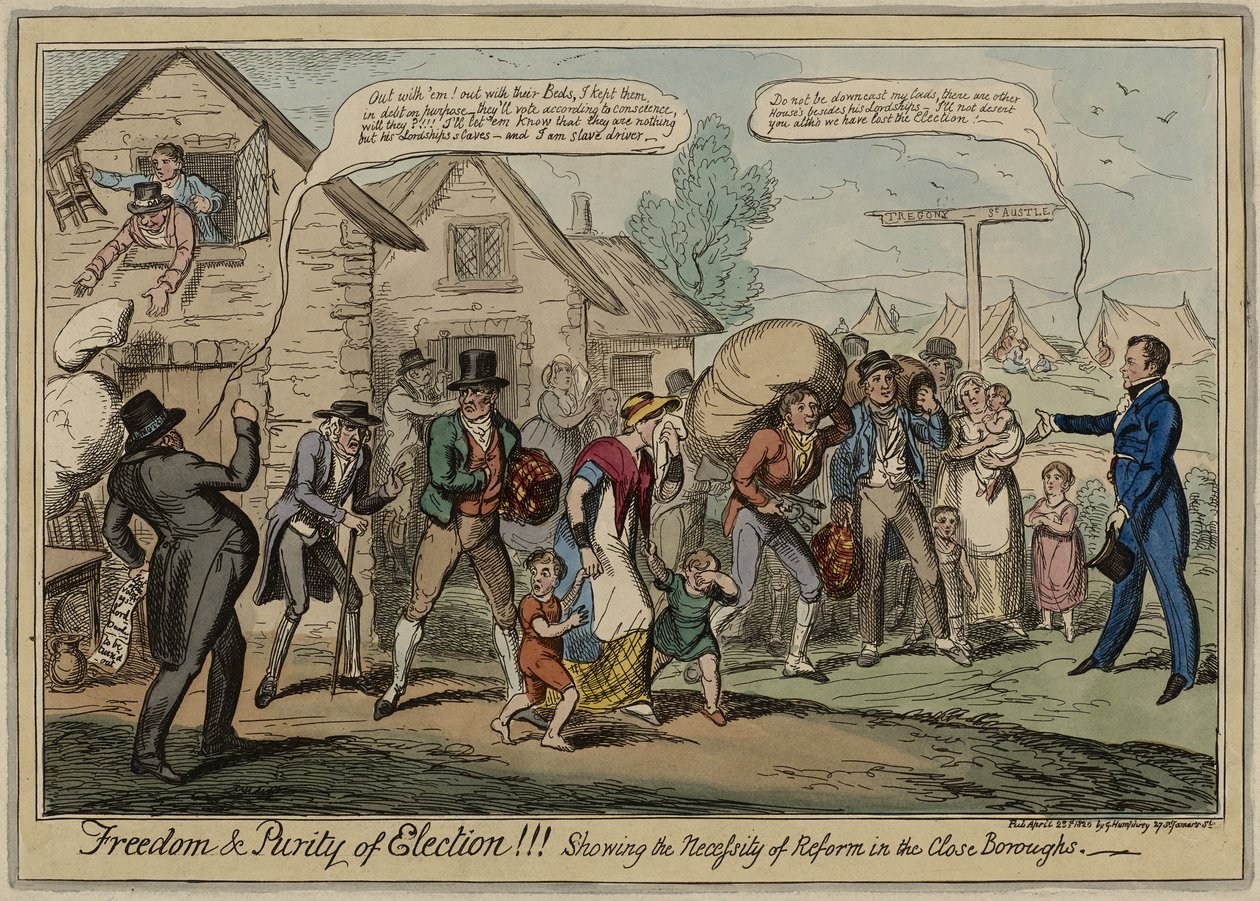 Out with 'em! out with their Beds, I kept them
in debt on purpose – they'll vote according to conscience,
will they?!!!! I'll let 'em know that they are nothing
but his Lordships slaves – and I am slave driver –
Do not be downcast my lads, there are other
House's besides his lordships – I'll not desert
you altho we have lost the Election! –
TREGONY St AUSTLE
to be
turn'd
out
Pub April 23d 1820 by G Humphrey 27 St James's St
Freedom & Purity of Election!!! Showing the Necessity of Reform in the Close Boroughs. –